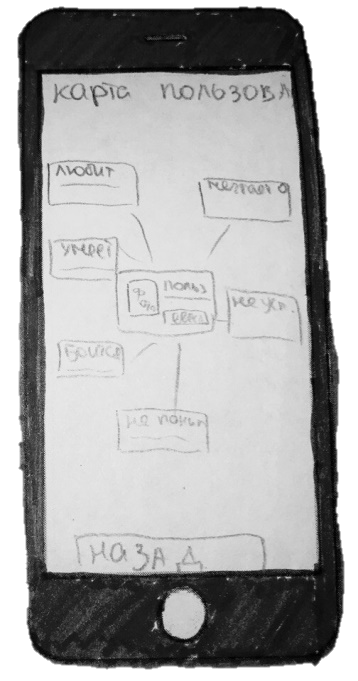 карта пользовл
любит
мечтает о
умеет
фото
польз
не ум.
боится
не поним
назад